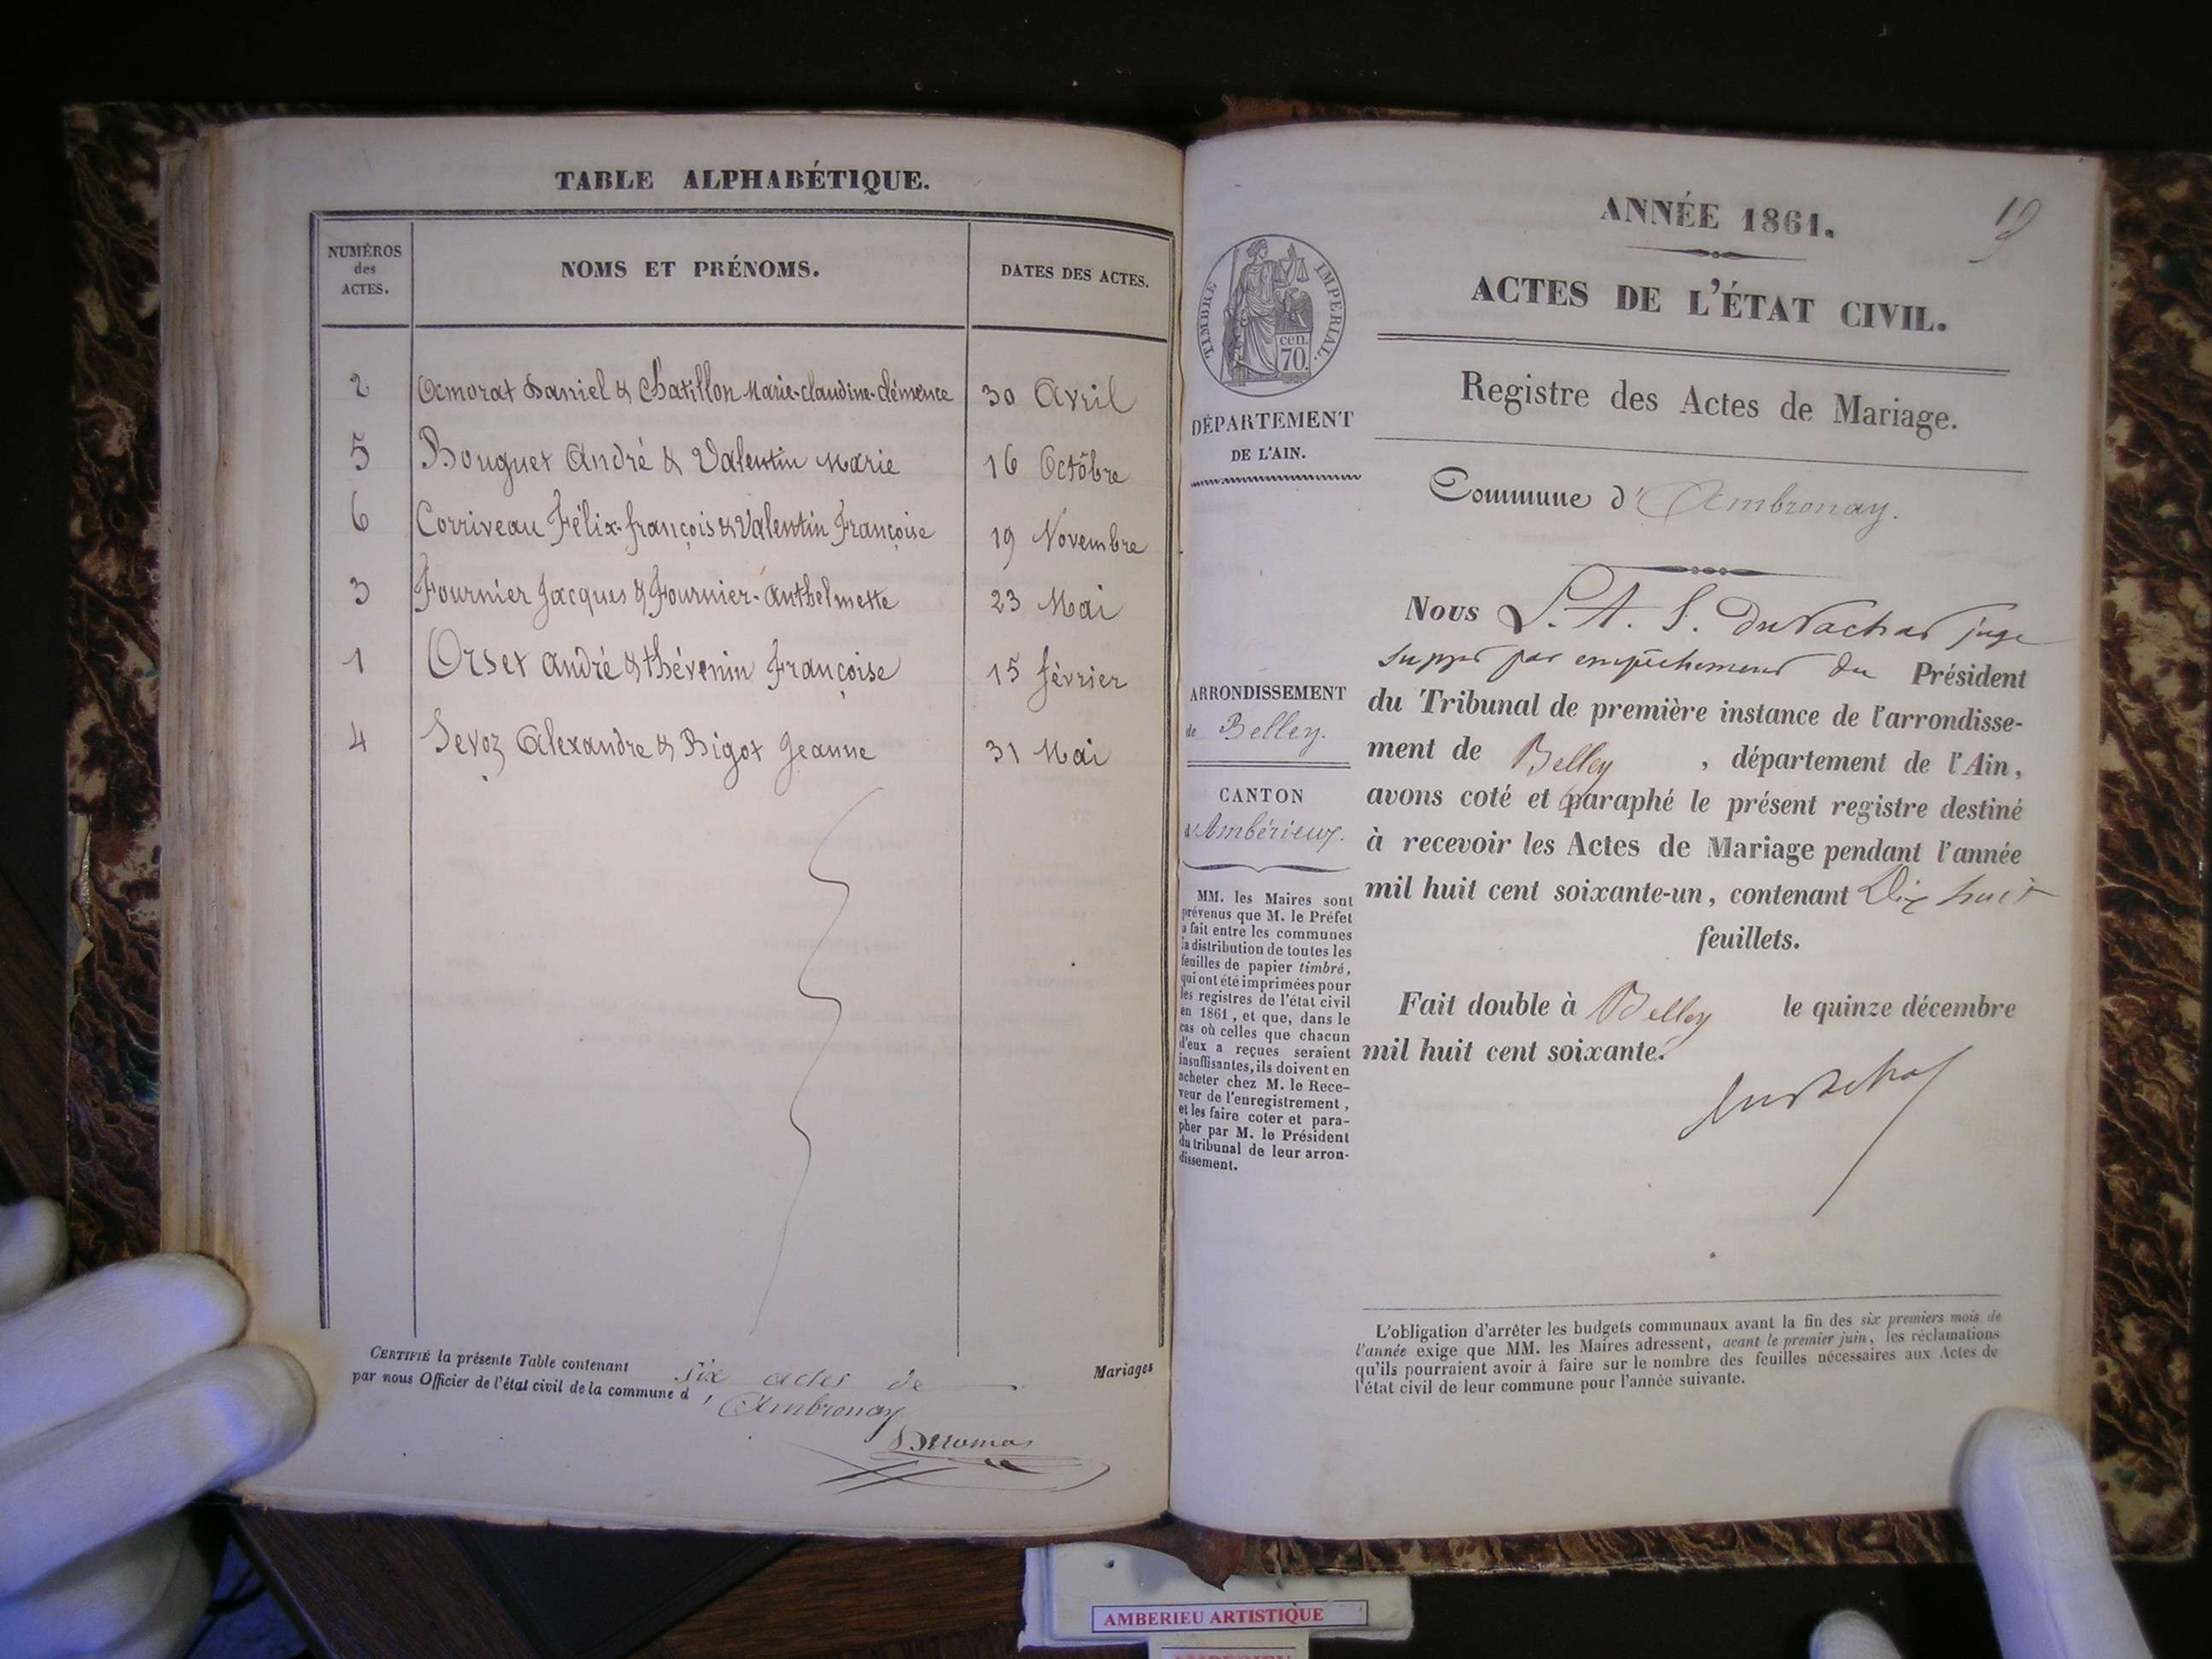 TABLE ALPHABÉTIQUE.
NUMÉROS des ACTES. NOMS ET PRÉNOMS. DATES DES ACTES.
2 Amorat Daniel & Chatillon Marie-claudine-clémence 30 Avril
5 Bouguet André & Valentin Marie 16 Octôbre
6 Corriveau Félix-françois & Valentin Françoise 19 Novembre
3 Fournier Jacques & Fournier-Anthelmette 23 Mai
1 Orset André & thévenin Françoise 15 février
4 Sevoz Alexandre & Bigot Jeanne 31 Mai
CERTIFIÉ la présente Table contenant six actes de Mariages
par nous Officier de l'état civil de la commune d'Ambronay
19
ANNÉE 1861.
ACTES DE L'ÉTAT CIVIL.
Registre des Actes de Mariage.
Commune d'Ambronay.
TIMBRE IMPÉRIAL.
cen.
70.
DÉPARTEMENT
DE L'AIN.
ARRONDISSEMENT
de Belley.
CANTON
d'Ambérieux.
MM. les Maires sont
prévenus que M. le Préfet
a fait entre les communes
la distribution de toutes les
feuilles de papier timbré,
qui ont été imprimées pour
les registres de l'état civil
en 1861, et que, dans le
cas où celles que chacun
d'eux a reçues seraient
insuffisantes, ils doivent en
acheter chez M. le Rece-
veur de l'enregistrement,
et les faire coter et para-
pher par M. le Président
du tribunal de leur arron-
dissement.
Nous juge
par empêchement du Président
du Tribunal de première instance de l'arrondisse-
ment de Belley, département de l'Ain,
avons coté et paraphé le présent registre destiné
à recevoir les Actes de Mariage pendant l'année
mil huit cent soixante-un, contenant Dix huit
feuillets.
Fait double à Belley le quinze décembre
mil huit cent soixante.
L'obligation d'arrêter les budgets communaux avant la fin des six premiers mois de
l'année exige que MM. les Maires adressent, avant le premier juin, les réclamations
qu'ils pourraient avoir à faire sur le nombre des feuilles nécessaires aux Actes de
l'état civil de leur commune pour l'année suivante.
AMBERIEU ARTISTIQUE